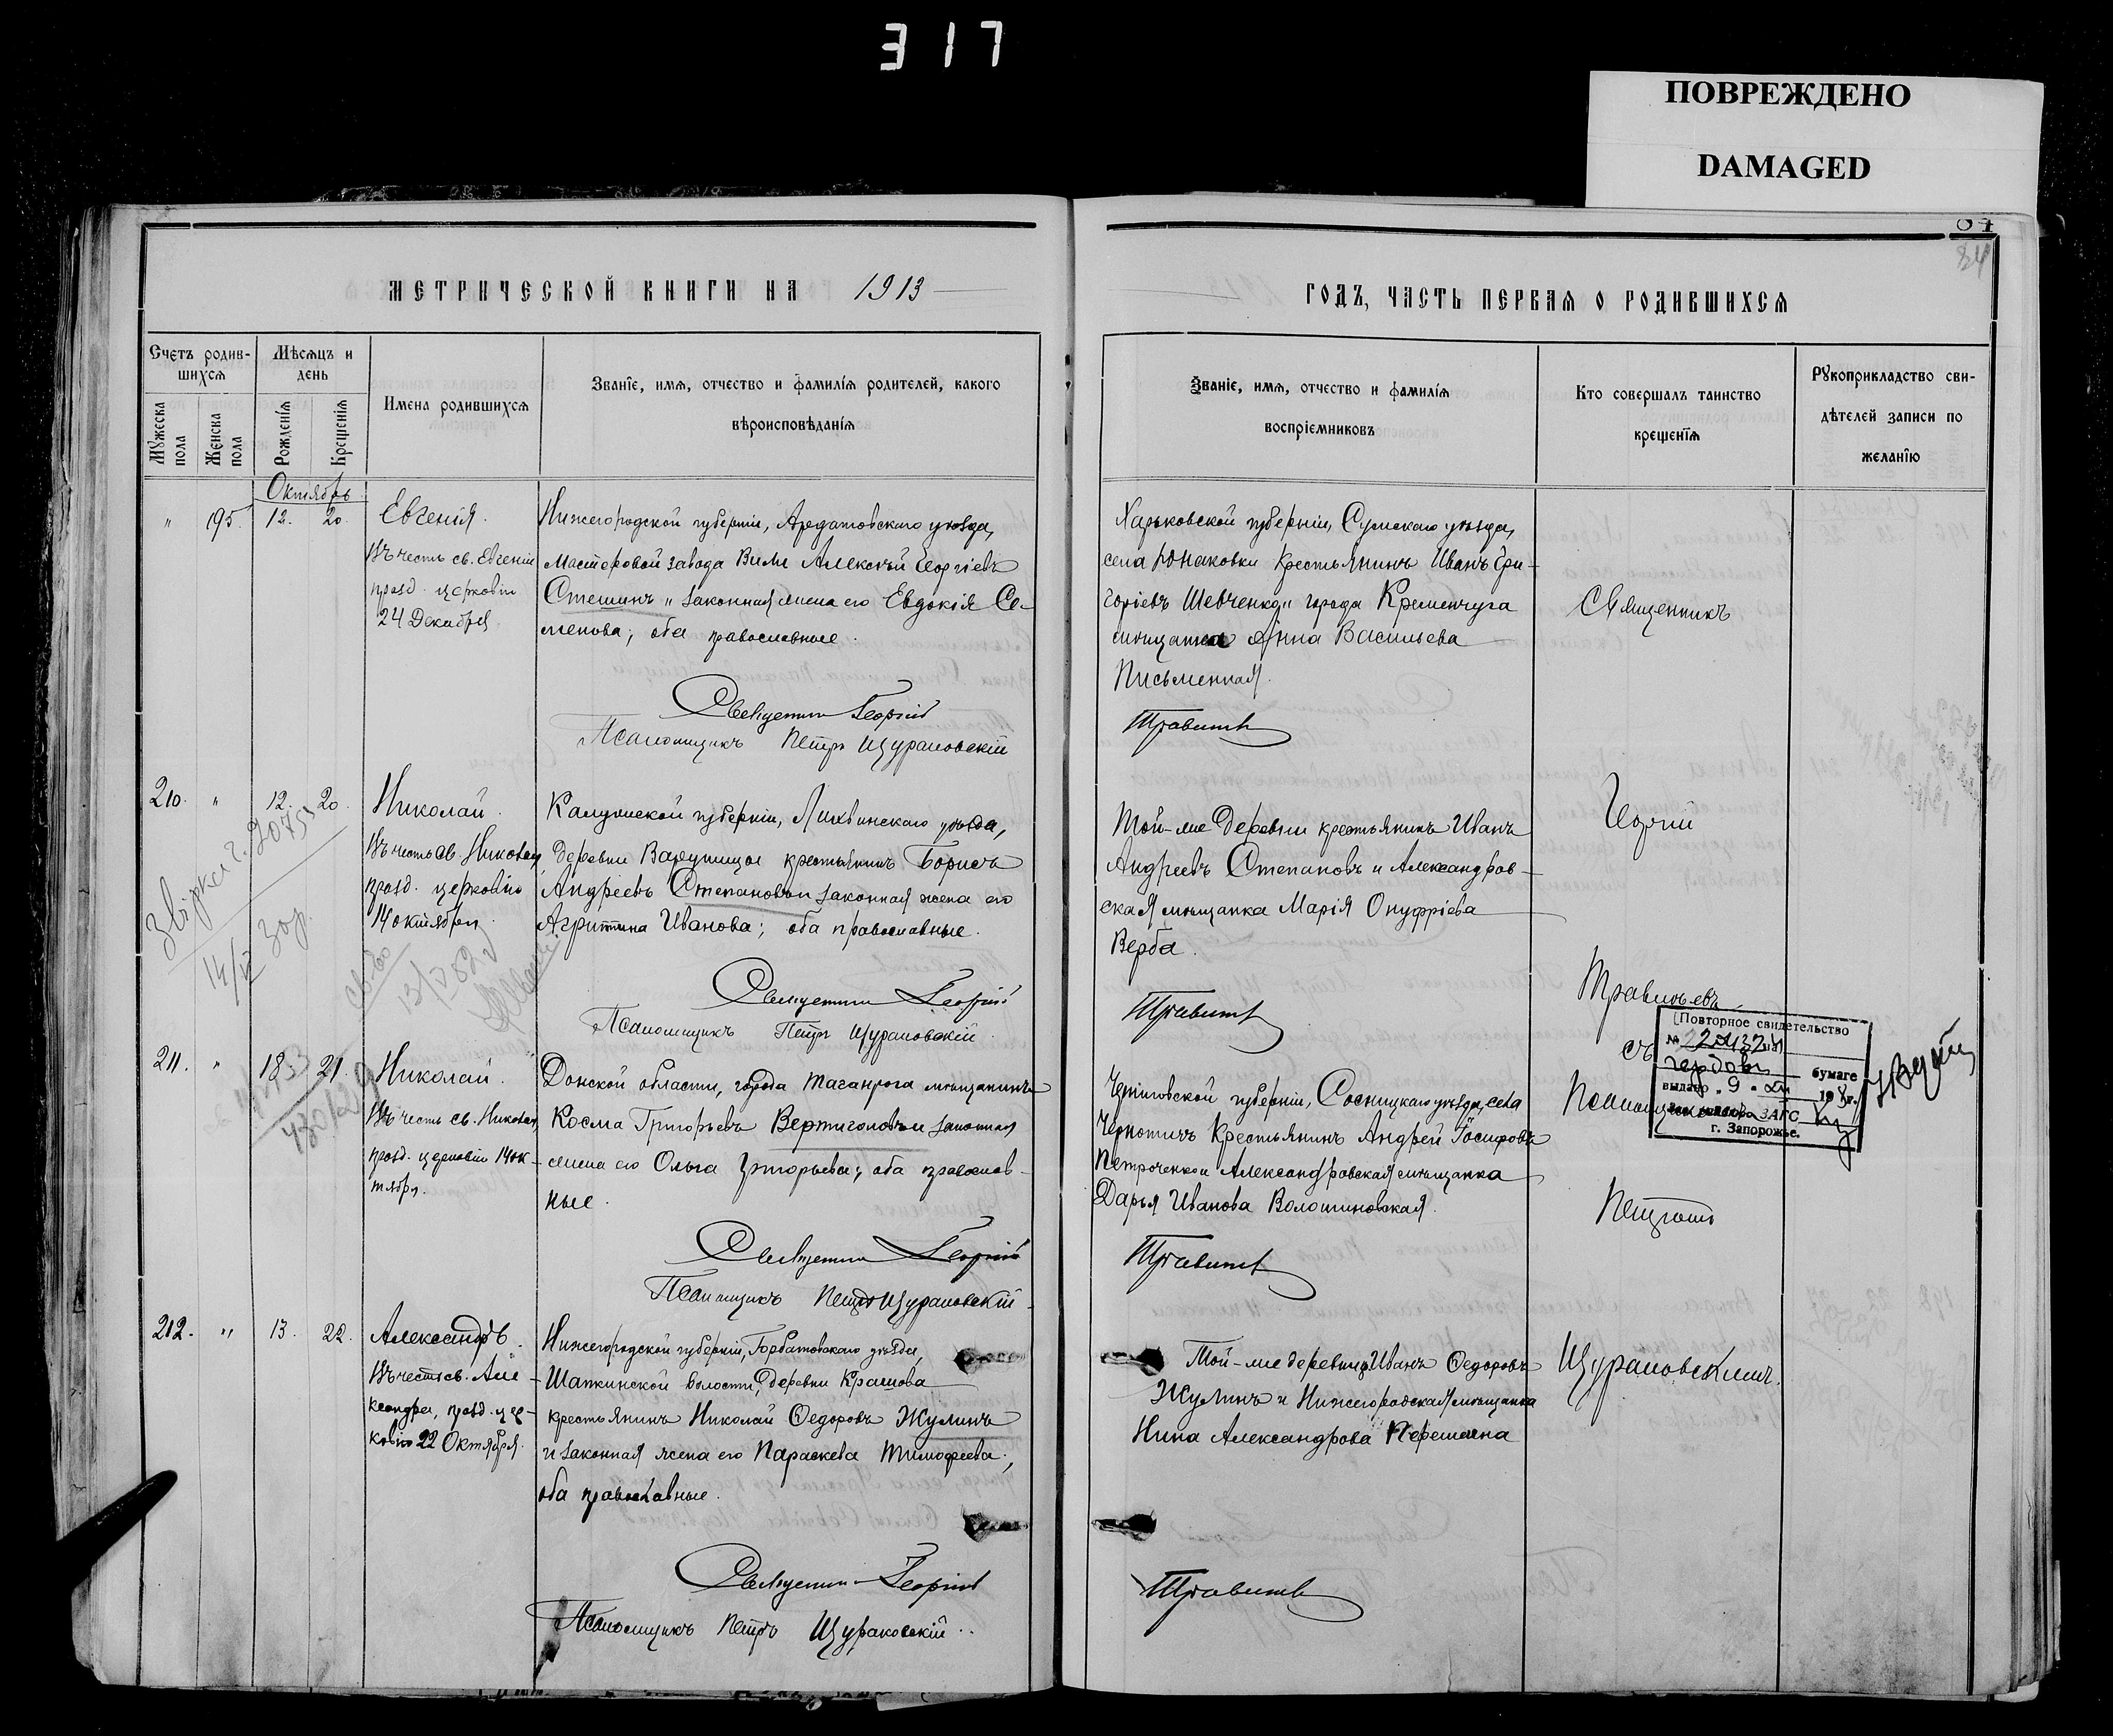 317
ПОВРЕЖДЕНО
DAMAGED
84
МЕТРИЧЕСКОЙ КНИГИ НА 1913
ГОДЪ, ЧАСТЬ ПЕРВАЯ О РОДИВШИХСЯ
Счетъ родив-
шихся
Мужеска пола
Женска пола
Мѣсяцъ и
день
Рожденія
Крещенія
Имена родившихся
Званіе, имя, отчество и фамилія родителей, какого
вѣроисповѣданія
Званіе, имя, отчество и фамилія
воспріемниковъ
Кто совершалъ таинство
крещенія
Рукоприкладство сви-
дѣтелей записи по
желанію
Октябрь
" 195. 12. 20.
Евгенія.
Въ честь св. Евгеніи
празд. церковію
24 Декабря
Нижегородской губерніи, Ардатовскаго уѣзда,
мастеровой завода Вили Алексѣй Георгіевъ
Стешинъ и законная жена его Евдокія Се-
менова; оба православные.
Священникъ Георгій
Псаломщикъ Петръ Щурановскій
Харьковской губерніи, Сумскаго уѣзда,
села Юнаковки крестьянинъ Иванъ Гри-
горіевъ Шевченко и города Кременчуга
мѣщанка Анна Васильева
Письменная.
Травинъ
210. " 12. 20.
Николай.
Въ честь св. Николая,
празд. церковію
14 октября.
Калужской губерніи, Лихвинскаго уѣзда,
деревни крестьянинъ Борисъ
Андреевъ Степановъ и законная жена его
Агриппина Иванова; оба православные.
Священникъ Георгій
Псаломщикъ Петръ Щурановскій
Той-же деревни крестьянинъ Иванъ
Андреевъ Степановъ и Александров-
ская мѣщанка Марія Онуфріева
Верба.
211. " 18 21.
Николай.
Въ честь св. Николая,
празд. церковію 14 ок-
тября.
Донской области, города Таганрога мѣщанинъ
Косма Григорьевъ Вертиголовъ и законная
жена его Ольга Григорьева; оба православ-
ные.
Священникъ Георгій
Псаломщикъ Петръ Щурановскій
Черниговской губерніи, Сосницкаго уѣзда, села
крестьянинъ Андрей Іосифовъ
Петроченко и Александровская мѣщанка
Дарья Иванова Волошиновская.
212. " 13. 22.
Александръ.
Въ честь св. Але-
ксандра, празд. цер-
ковію 22 Октября.
Нижегородской губерніи, Горбатовскаго уѣзда,
Шапкинской волости, деревни Крашова
крестьянинъ Николай Ѳедоровъ Жулинъ
и законная жена его Параскева Тимофеева;
оба православные.
Священникъ Георгій
Псаломщикъ Петръ Щурановскій.
Той-же деревни Иванъ Ѳедоровъ
Жулинъ и Нижегородская мѣщанка
Нина Александрова
Священникъ
Георгій
съ
Псаломщикомъ
Петромъ
Щурановскимъ.
Повторное свидетельство
№
бумаге
выдано 9
ЗАГС
г. Запорожье.